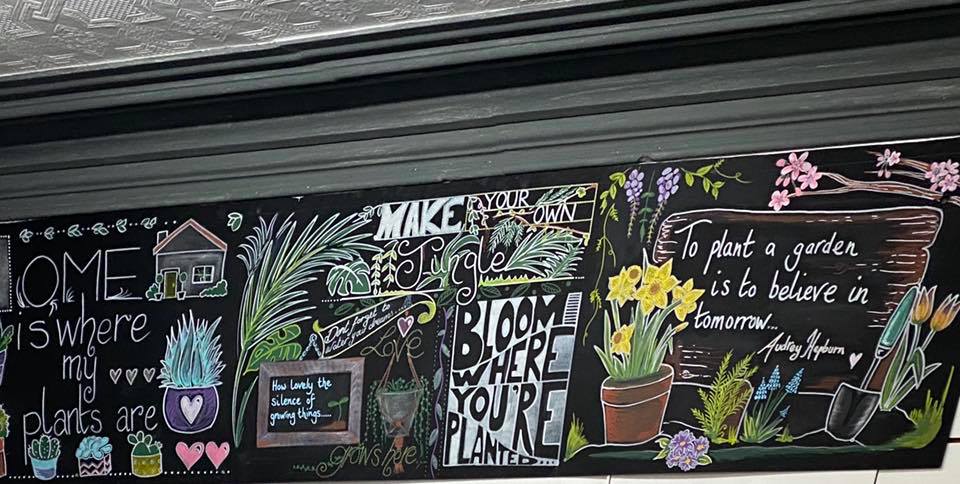 OME
is where
my
plants are
MAKE YOUR OWN
Jungle
Dont forget to
water your dreams....
How lovely the
silence of
growing things.....
Love
grows here...
BLOOM
WHERE
YOU'RE
PLANTED...
To plant a garden
is to believe in
tomorrow...
Audrey Hepburn